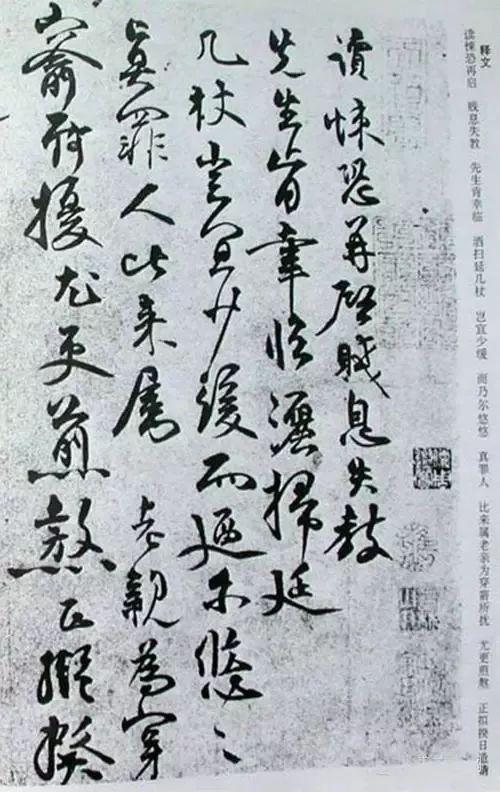 释文
读悚恐再启 贱息失教 先生肯幸临 洒扫延几杖 岂宜少缓 而乃尔悠悠 真罪人 比来属老亲为穿窬所扰 尤更煎熬 正拟揆日造请
讀悚恐再啓賤息失教
先生肯幸臨灑掃延
几杖豈宜少緩而迺尔悠〻
真罪人比来属老親為穿
窬所擾尤更煎熬正擬揆